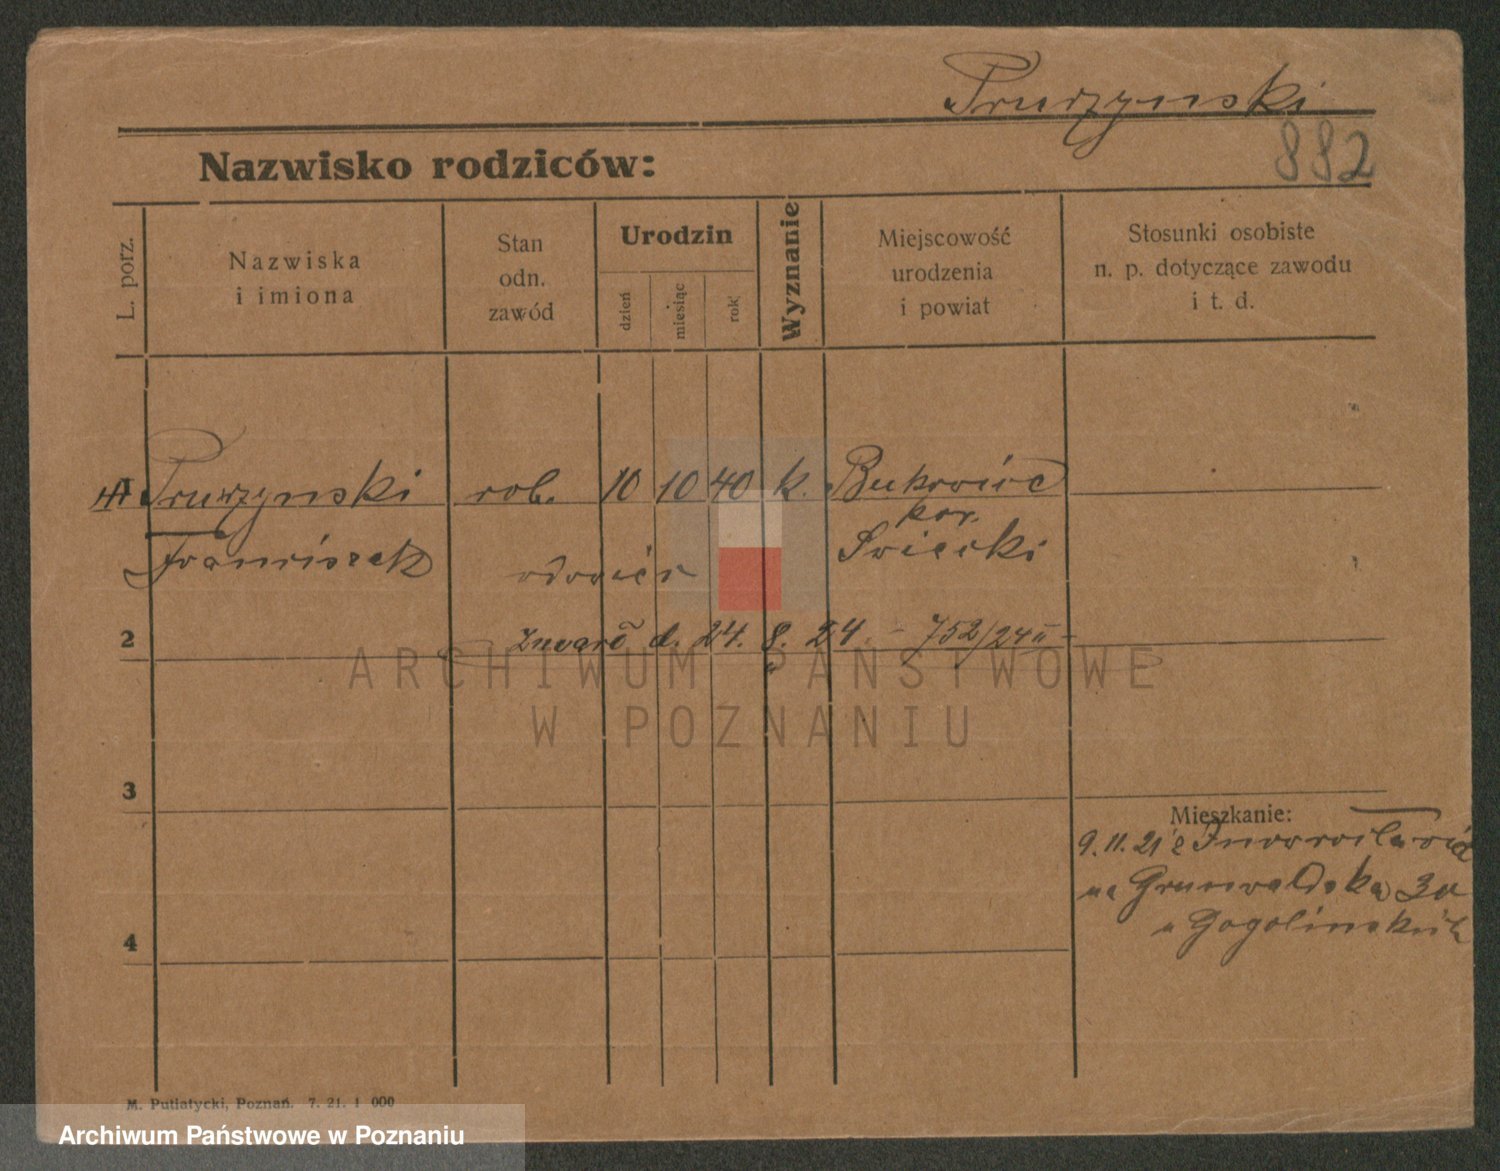 Pruczynski
882
Nazwisko rodziców:
L. porz.
Nazwiska
i imiona
Stan
odn.
zawód
Urodzin
dzień
miesiąc
rok
Wyznanie
Miejscowość
urodzenia
i powiat
Stosunki osobiste
n. p. dotyczące zawodu
i t. d.
1 Pruczynski rob. 10 10 40 k. Bukowiec
pow.
Franciszek Swiecki
wdowiec
2 zmarł d. 24. 8. 24. - 752/24 II -
ARCHIWUM PAŃSTWOWE
W POZNANIU
3
Mieszkanie:
9.11.21 z Inowrocławia
na Grunwaldska
u Gogolinskich
4
M. Putiatycki, Poznań. 7. 21. 1 000
Archiwum Państwowe w Poznaniu